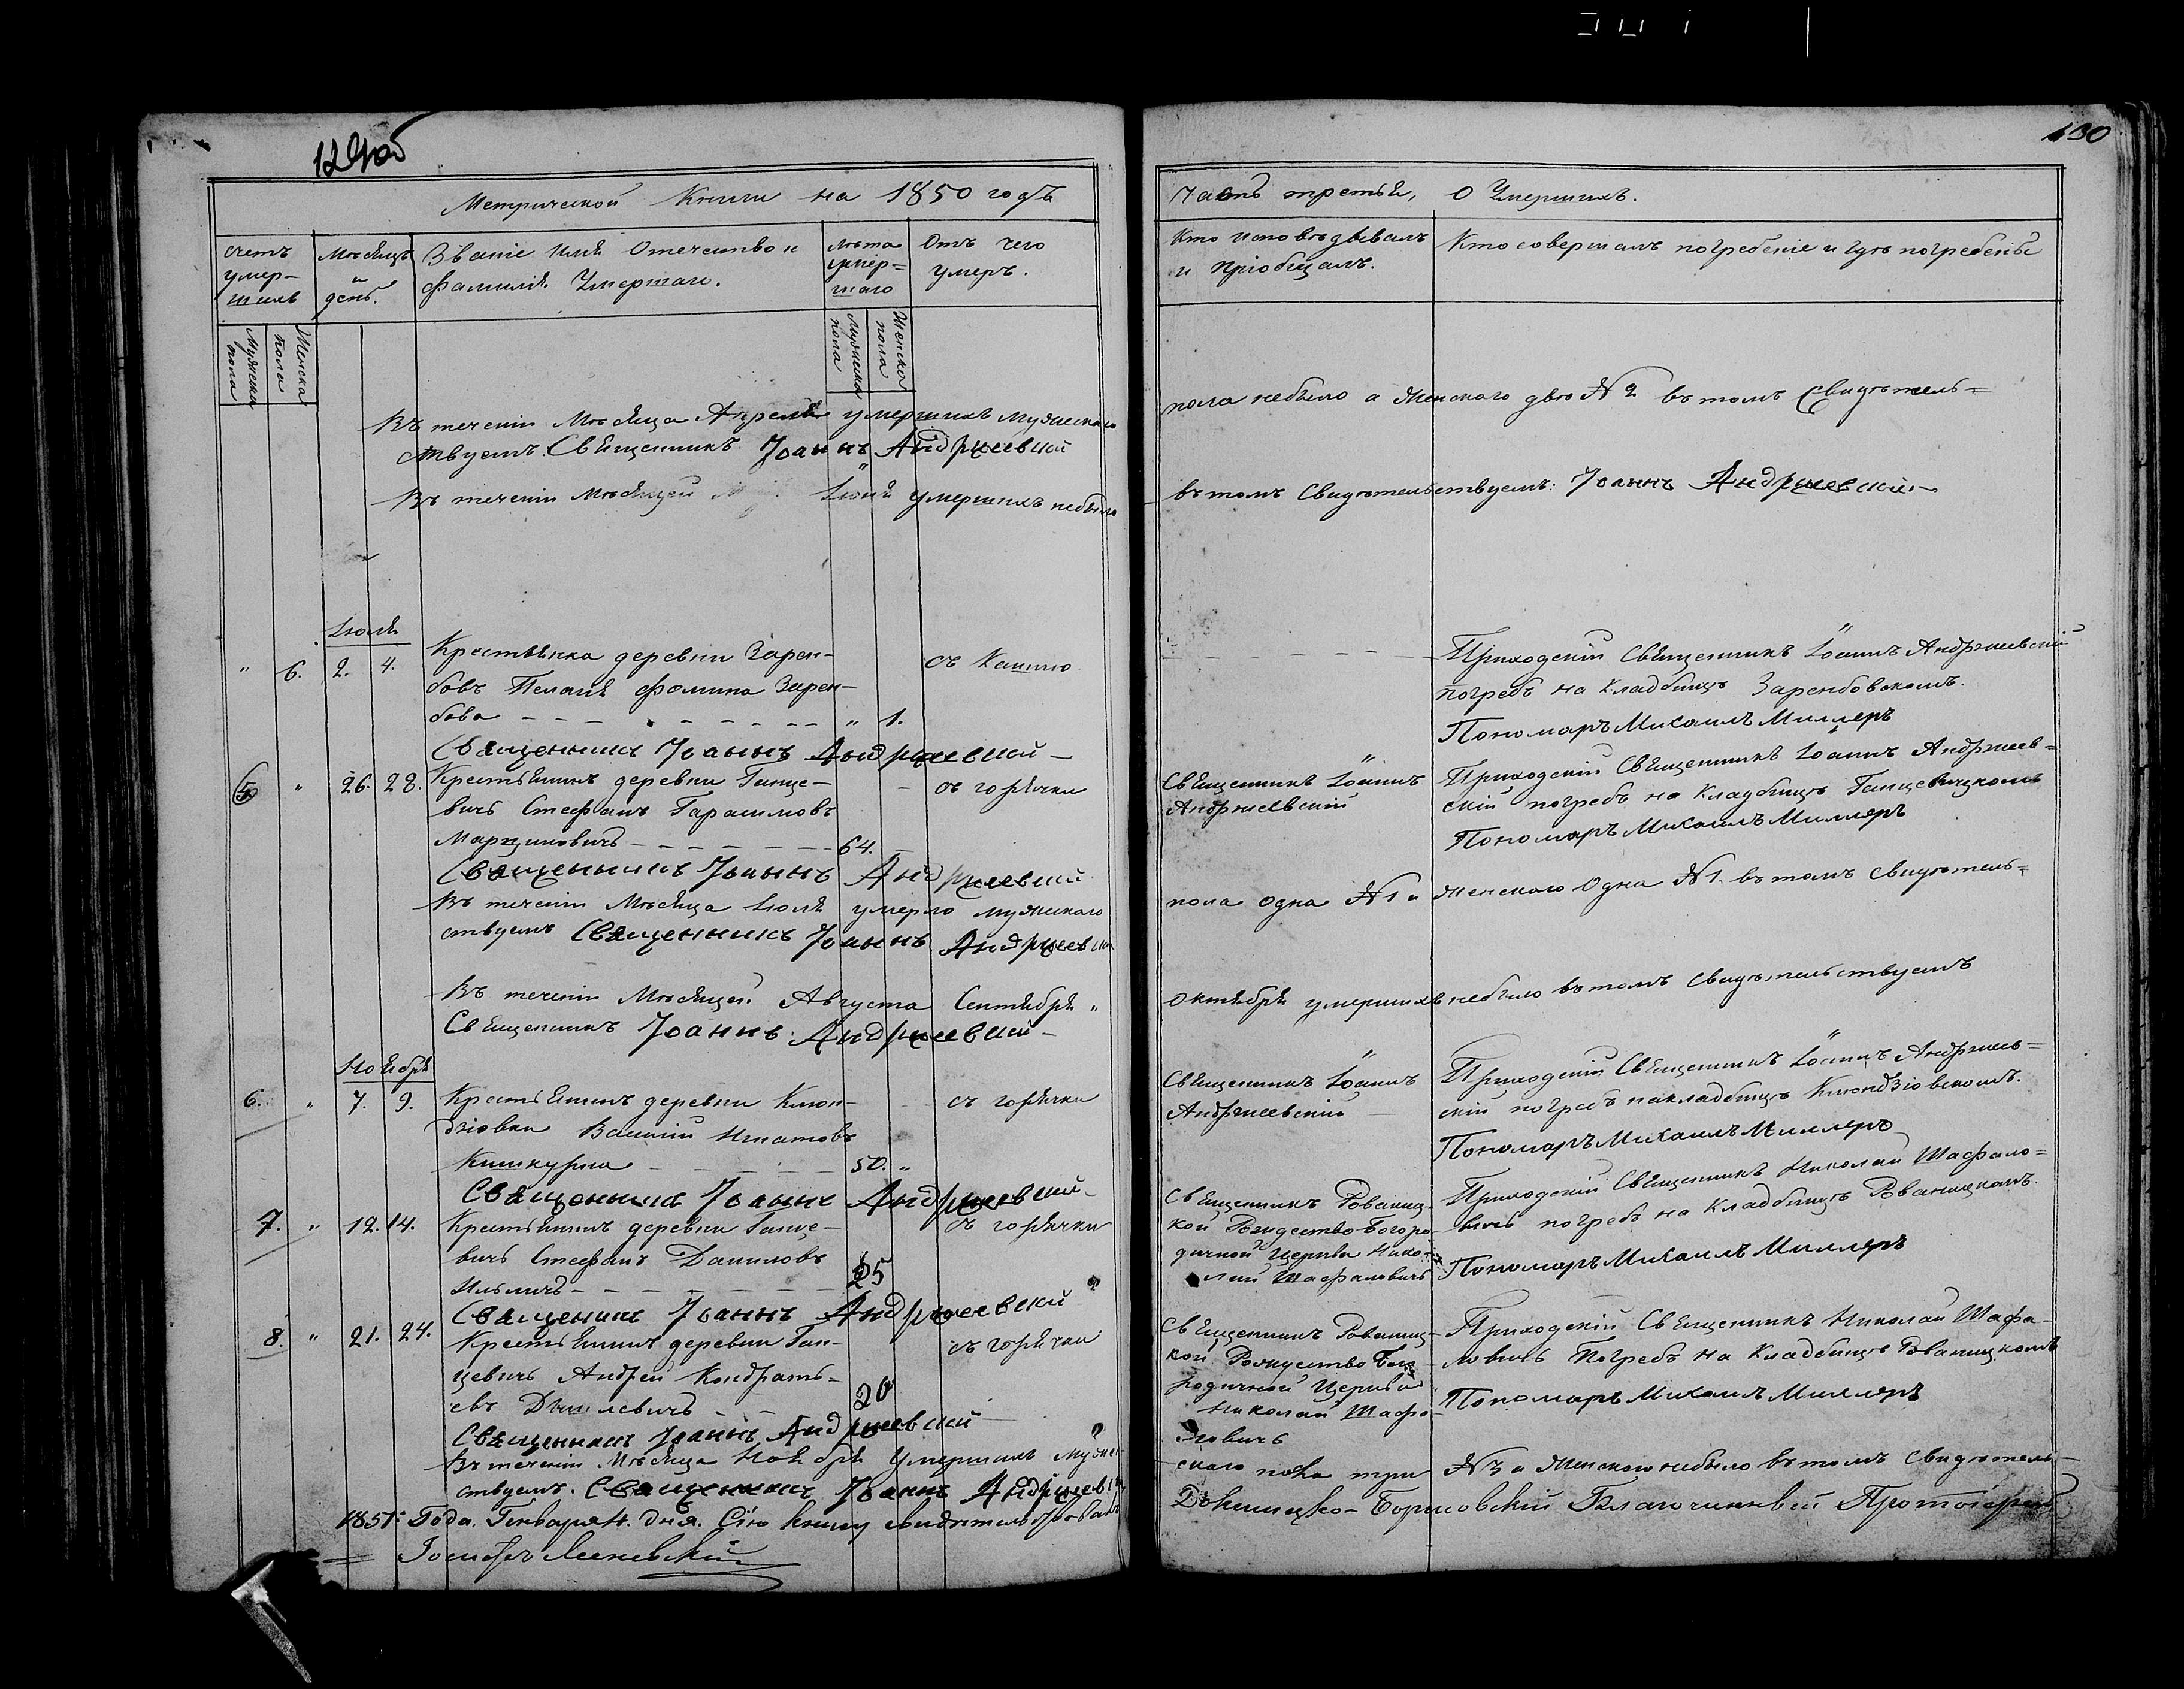 129об
130
Метрической Книги на 1850 годъ
Часть третья, О Умершихъ.
Счетъ умер-
шихъ
Мѣсяцъ
и
день.
Званіе Имя Отечество и
фамилія Умершаго.
Лѣта
умер=
шаго
Отъ чего
умеръ.
Кто исповѣдывалъ
и пріобщалъ.
Кто совершалъ погребеніе и гдѣ погребены
Мужеска
пола
Женска
пола
Мужеска
пола
Женска
пола
Въ теченіи Мѣсяца Апреля умершихъ мужескаго
пола небыло а Женскаго двѣ № 2 въ томъ Свидѣтель=
ствуемъ. Священникъ Іоаннъ Андржеевскій
Въ теченіи Мѣсяцей Іюня умершихъ небыло
въ томъ Свидѣтельствуемъ: Іоаннъ Андржеевскій.
Іюля
" 6. 2. 4. Крестьянка деревни Зарен-
бовъ Пелагія Фомина Зарен-
бова " 1.
съ Кашлю
Приходскій Священникъ Іоаннъ Андржеевскій
погребъ на Кладбищѣ Зарембовскомъ.
Пономаръ Михаилъ Миллеръ
Священникъ Іоаннъ Андржеевскій
5 " 26. 28. Крестьянинъ деревни Ганце-
вичъ Стефанъ Гарасимовъ
Марциновичъ 64.
съ горячки
Священникъ Іоаннъ
Андржеевскій
Приходскій Священникъ Іоаннъ Андржеев=
скій погребъ на Кладбищѣ Ганцевицкомъ
Пономаръ Михаилъ Миллеръ
Священникъ Іоаннъ Андржеевскій
Въ теченіи Мѣсяца Іюля умерло мужескаго
пола одна № 1 и Женскаго Одна № 1. въ томъ свидѣтель=
ствуемъ Священникъ Іоаннъ Андржеевскій
Въ теченіи Мѣсяцей Августа Сентября "
Октября умершихъ небыло въ томъ свидѣтельствуемъ
Священникъ Іоаннъ Андржеевскій
Ноября
6. " 7. 9. Крестьянинъ деревни Клюн-
дзіовки Василій Игнатовъ
Кишкурна 50. "
съ горячки
Священникъ Іоаннъ
Андржеевскій
Приходскій Священникъ Іоаннъ Андржеев=
скій погребъ на кладбищѣ Клюндзіовскомъ.
Пономаръ Михаилъ Миллеръ
Священникъ Іоаннъ Андржеевскій
7. " 12. 14. Крестьянинъ деревни Ганце-
вичъ Стефанъ Даниловъ
Ильичъ 25
съ горячки
Священникъ Рованиц-
кой Рождество Богоро
дичной Церкви Нико-
лай Шафаловичъ
Приходскій Священникъ Николай Шафало=
вичъ погребъ на Кладбищѣ Рованицкомъ.
Пономаръ Михаилъ Миллеръ
Священникъ Іоаннъ Андржеевскій
8. " 21. 24. Крестьянинъ деревни Ган-
цевичъ Андрей Кондрать-
евъ 20
съ горячки
Священникъ Рованиц-
кой Рождество Бого
родичной Церкви
Николай Шафа-
ловичъ
Приходскій Священникъ Николай Шафа-
ловичъ Погребъ на Кладбищѣ Рованицкомъ
Пономаръ Михаилъ Миллеръ
Священникъ Іоаннъ Андржеевскій
Въ теченіи Мѣсяца Ноября Умершихъ Муже-
скаго пола три № 3 а Женскаго небыло въ томъ Свидѣтель-
ствуемъ. Священникъ Іоаннъ Андржеевскій
1851: Года. Генваря дня. Сію книгу свидѣтельствовалъ
Докшицко-Борисовскій Благочинный Протоіерей
Іосифъ